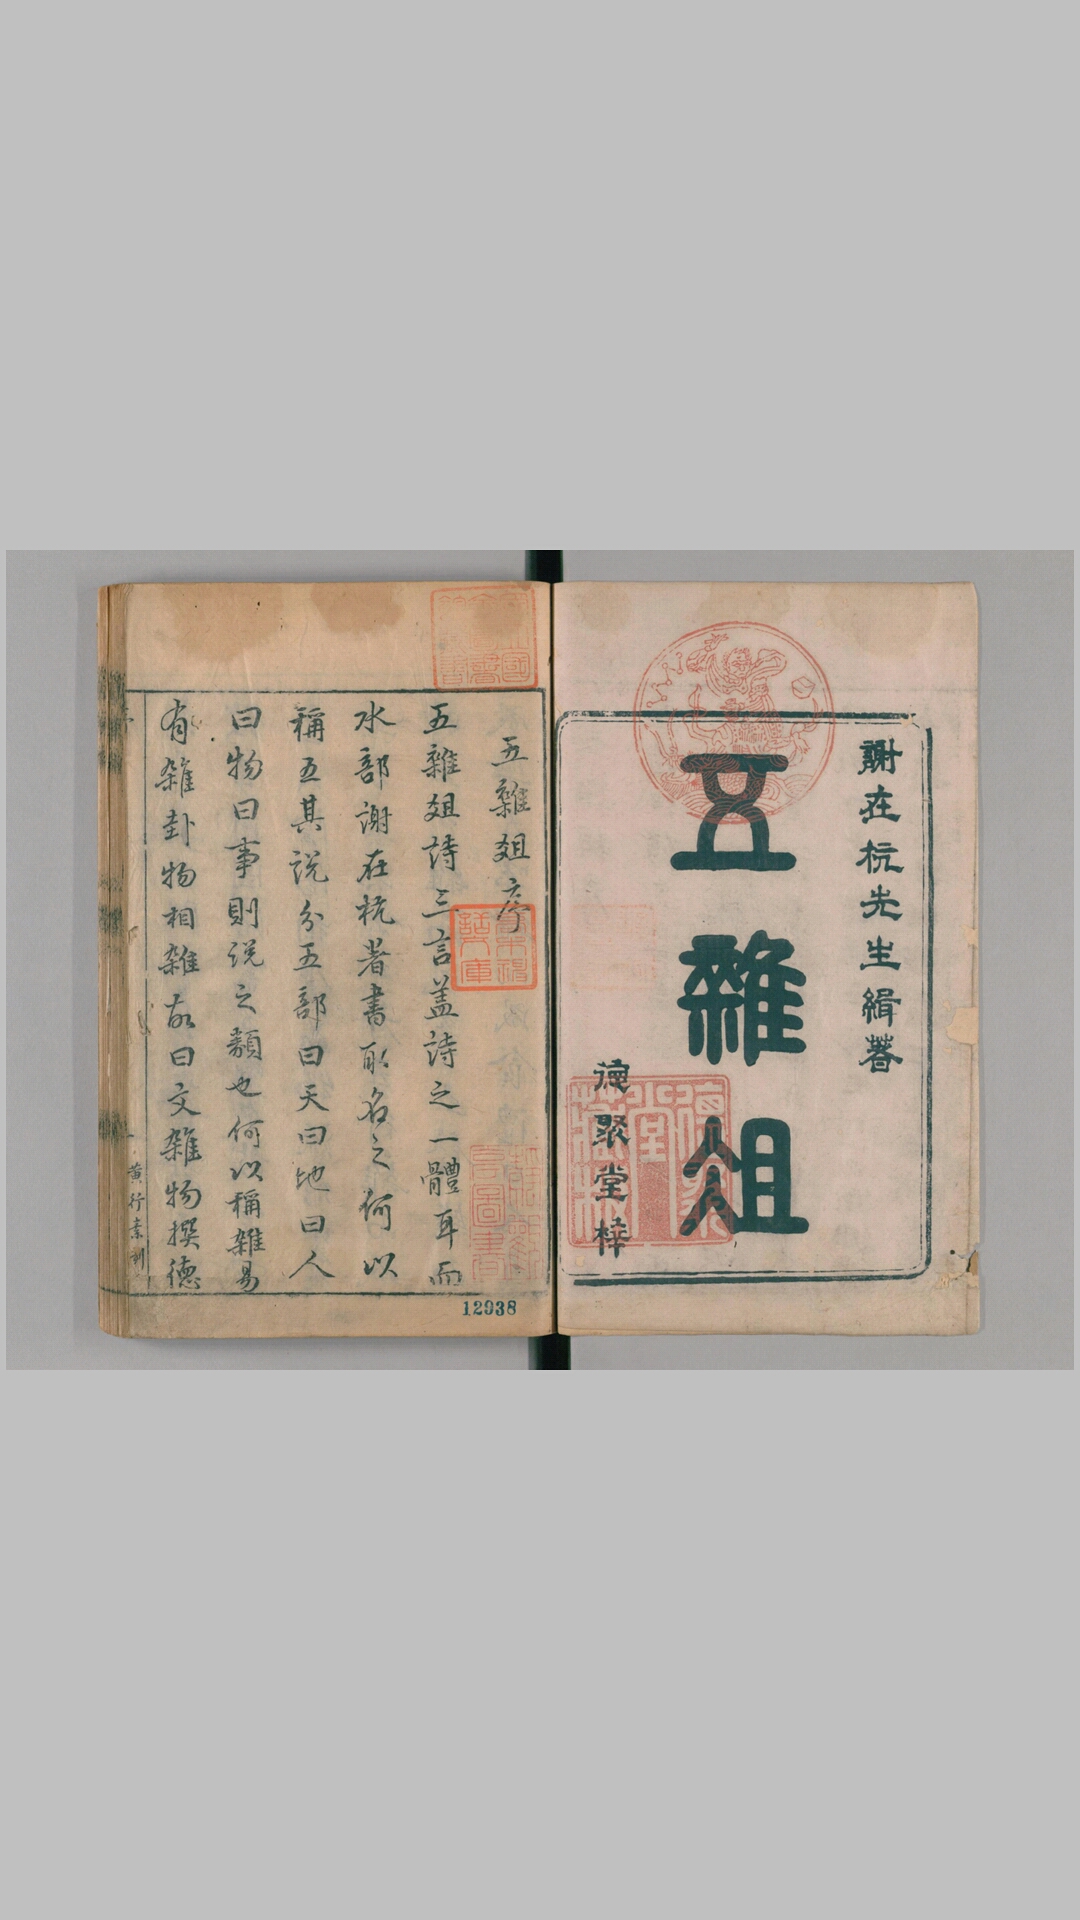 謝在杭先生緝著
五雜俎
德聚堂梓
五雜俎序
五雜俎詩三言盖詩之一體耳而
水部謝在杭著書取名之何以
稱五其説分五部曰天曰地曰人
曰物曰事則説之類也何以稱雜易
有雜卦物相雜故曰文雜物撰德
黄行素刻
12938